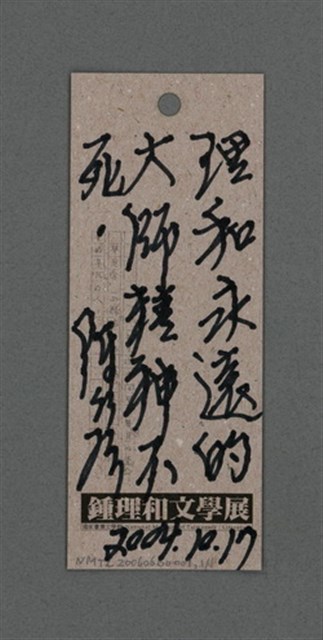 理和永遠的
大師精神不
死．
鍾理和文學展
2004.10.17